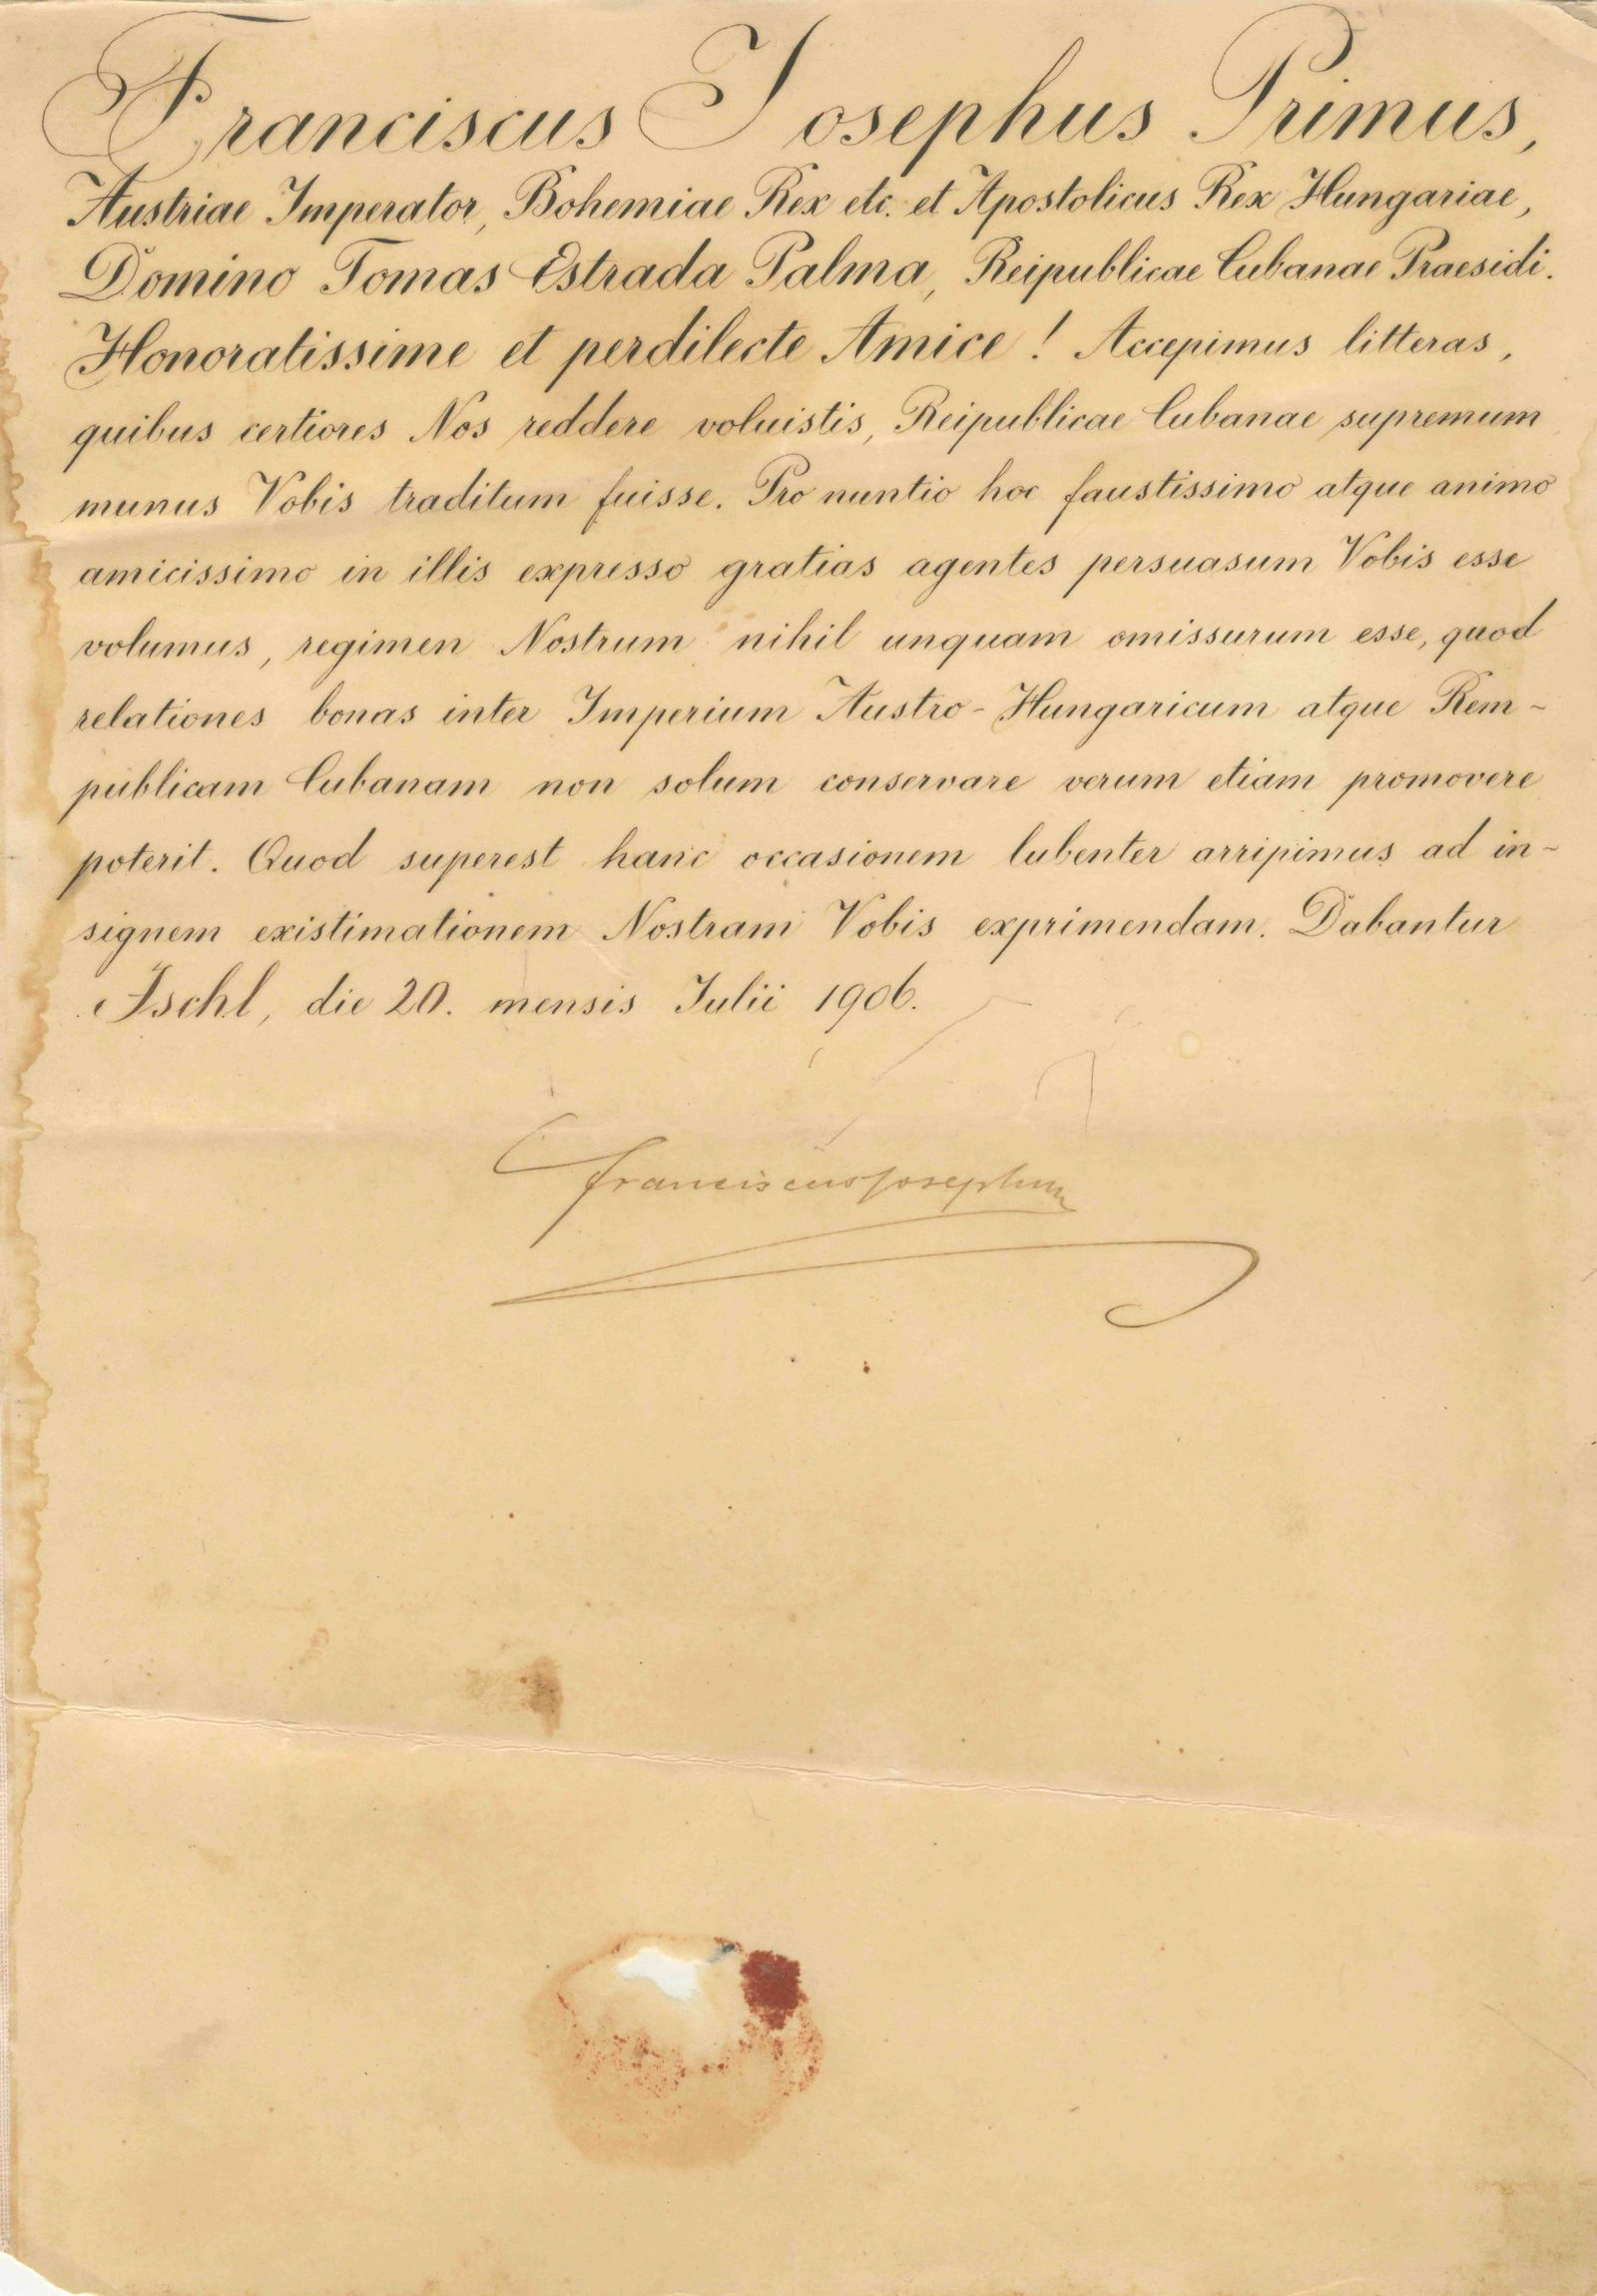 Franciscus Josephus Primus,
Austriae Imperator, Bohemiae Rex etc. et Apostolicus Rex Hungariae,
Domino Tomas Estrada Palma, Reipublicae Cubanae Praesidi.
Honoratissime et perdilecte Amice! Accepimus litteras,
quibus certiores Nos reddere voluistis, Reipublicae Cubanae supremum
munus Vobis traditum fuisse. Pro nuntio hoc faustissimo atque animo
amicissimo in illis expresso gratias agentes persuasum Vobis esse
volumus, regimen Nostrum nihil unquam omissurum esse, quod
relationes bonas inter Imperium Austro-Hungaricum atque Rem-
publicam Cubanam non solum conservare verum etiam promovere
poterit. Quod superest hanc occasionem lubenter arripimus ad in-
signem existimationem Nostram Vobis exprimendam. Dabantur
Ischl, die 20. mensis Julii 1906.
Franciscus Josephus